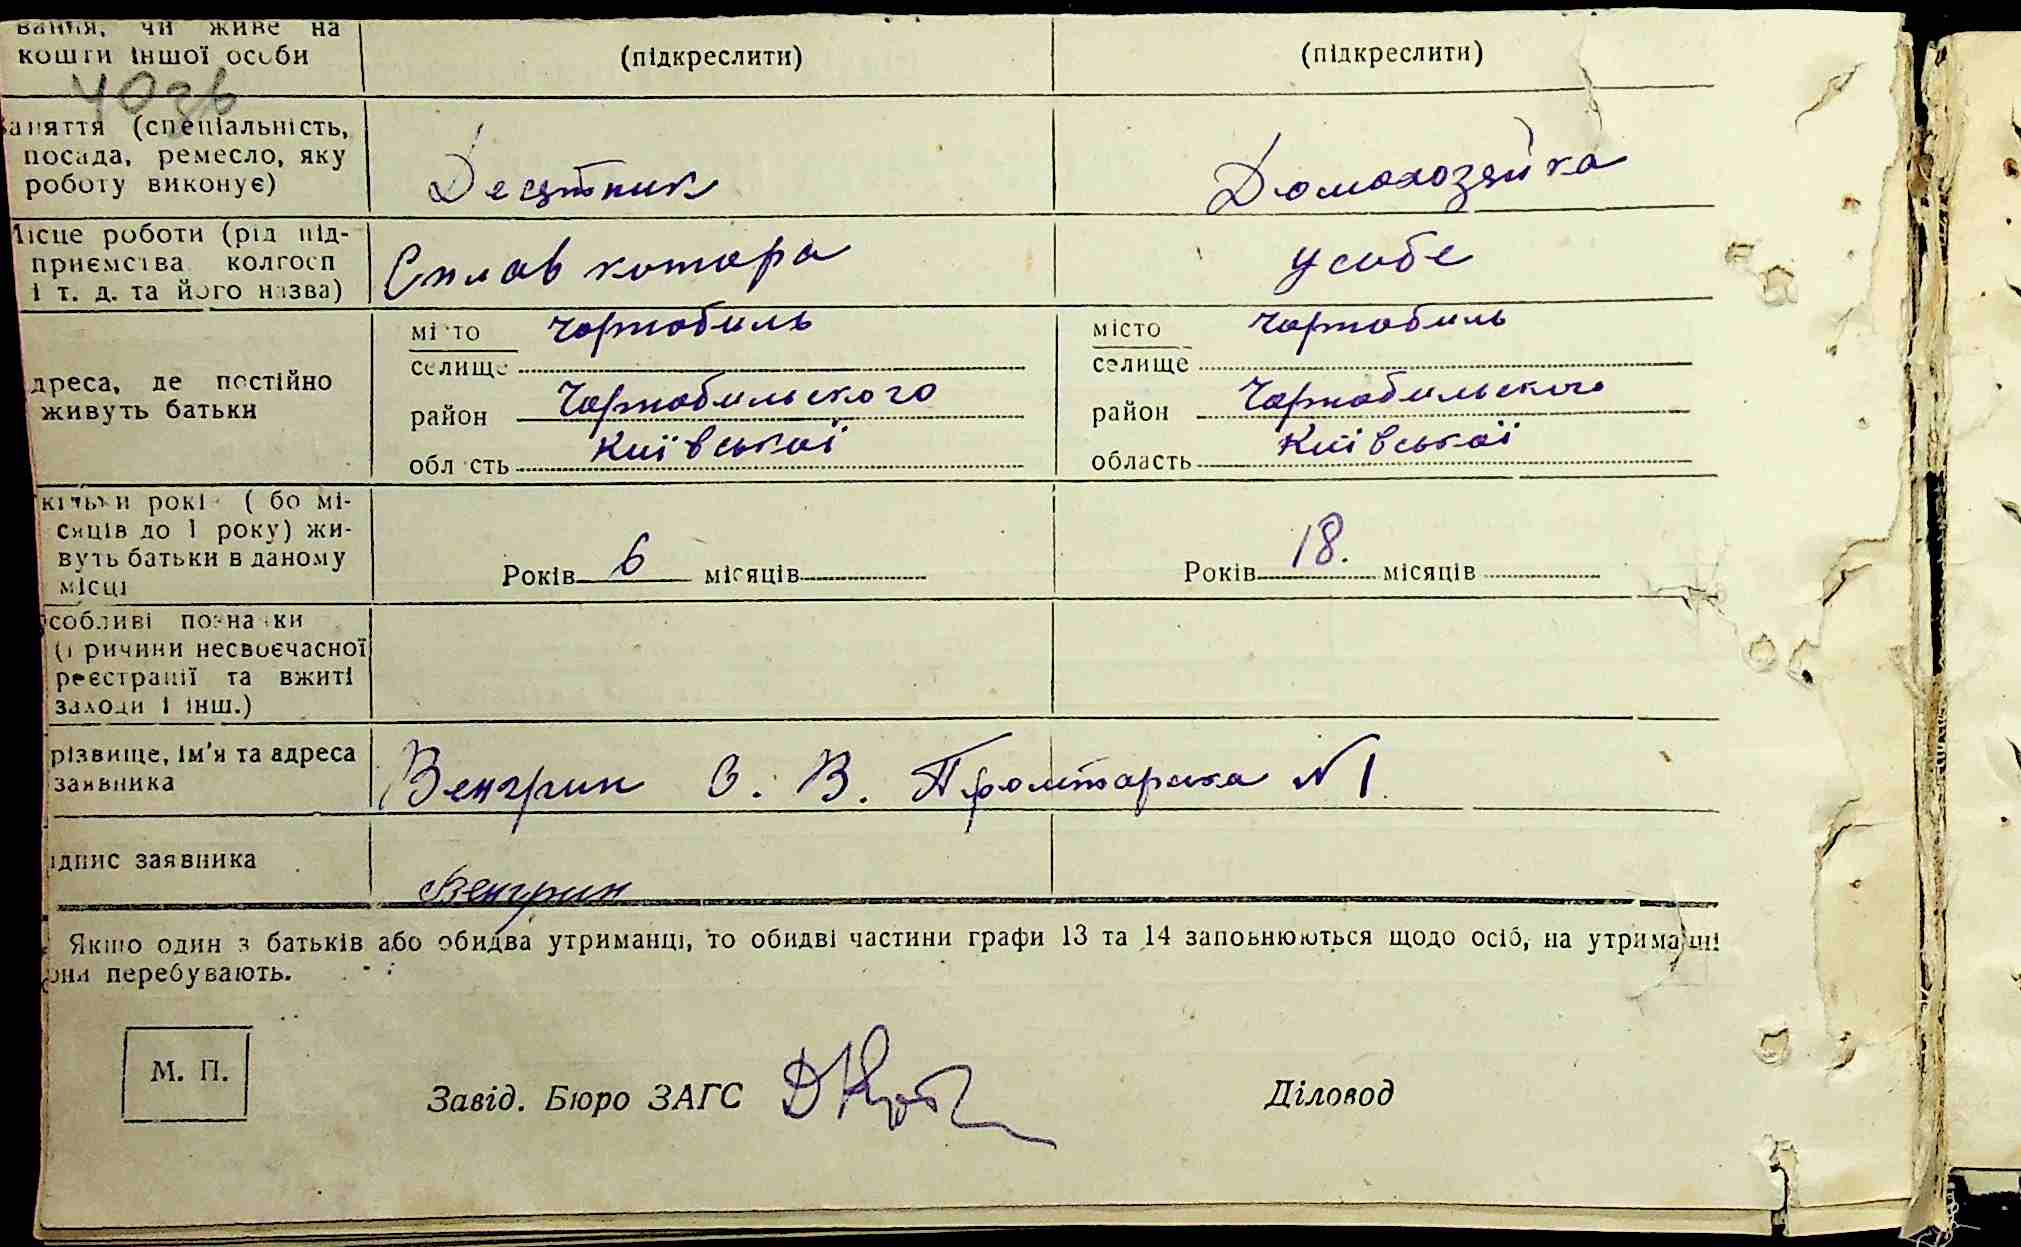 вання, чи живе на
кошти іншої особи
(підкреслити)
(підкреслити)
40зв
Заняття (спеціальність,
посада, ремесло, яку
роботу виконує)
Десятник
Домохозяйка
Місце роботи (рід під-
приємства колгосп
і т. д. та його назва)
Сплав контора
усебе
місто Чорнобиль
місто Чорнобиль
селище
селище
дреса, де постійно
живуть батьки
район Чорнобильского
район Чорнобильского
область Київської
область Київської
кільки років ( бо мі-
сяців до 1 року) жи-
вуть батьки в даному
місці
Років 6 місяців
Років 18. місяців
собливі познаки
(причини несвоєчасної
реєстрації та вжиті
заходи і інш.)
різвище, ім'я та адреса
заявника
Венгрин З. В. Промтарска N 1
ідпис заявника
Венгрин
Якщо один з батьків або обидва утриманці, то обидві частини графи 13 та 14 заповнюються щодо осіб, на утриманні
они перебувають.
М. П.
Завід. Бюро ЗАГС
Діловод